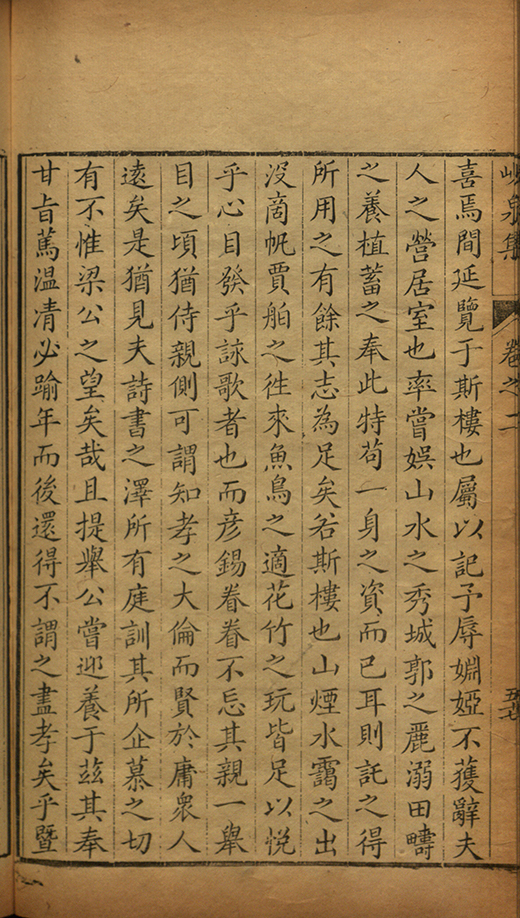 峴泉集
卷之二
五十七
喜焉間延覽于斯樓也屬以記予辱婣婭不獲辭夫
人之營居室也率嘗娱山水之秀城郭之麗溺田疇
之養植蓄之奉此特苟一身之資而已耳則託之得
所用之有餘其志為足矣若斯樓也山煙水靄之出
沒啇帆賈舶之徃來魚鳥之適花竹之玩皆足以悦
乎心目發乎詠歌者也而彥錫眷眷不忘其親一舉
目之頃猶侍親側可謂知孝之大倫而賢於庸衆人
遠矣是猶見夫詩書之澤所有庭訓其所企慕之切
有不惟梁公之望矣哉且提舉公嘗迎養于茲其奉
甘旨篤温凊必踰年而後還得不謂之盡孝矣乎暨